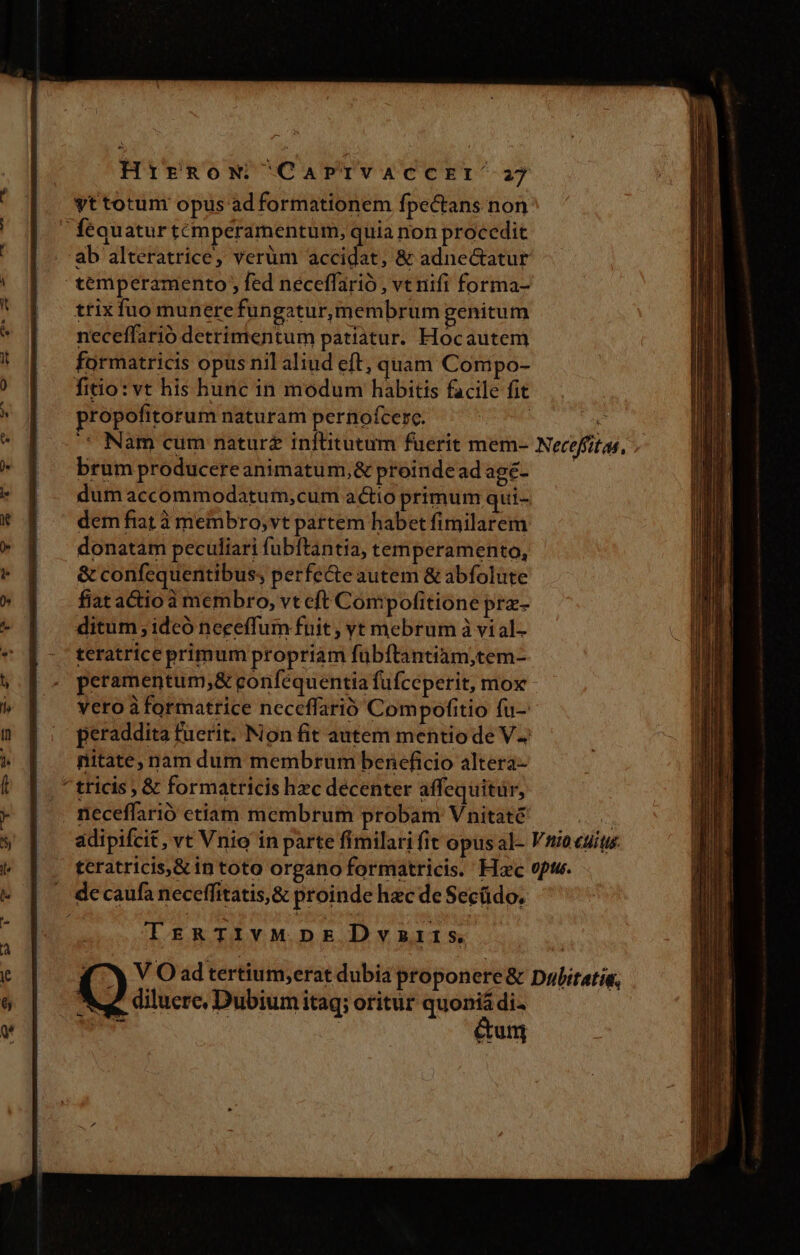 HIERON. CAPIVACCEI 27
vt totum opus ad formationem ſpectans non
ſequatur temperamentum, quia non procedit
ab alteratrice, verùm accidat, & adnectatur
temperamento, ſed neceſſariò, vt niſi forma-
trix ſuo munere fungatur, membrum genitum
neceſſariò detrimentum patiatur. Hoc autem
formatricis opus nil aliud eſt, quam Compo-
ſitio: vt his hunc in modum habitis facile fit
propoſitorum naturam pernoſcere.
Nam cum naturæ inſtitutum fuerit mem- Neceſſitas.
brum producere animatum, & proinde ad agē-
dum accommodatum, cum actio primum qui-
dem fiat à membro, vt partem habet ſimilarem
donatam peculiari ſubſtantia, temperamento,
& conſequentibus, perfecte autem & abſolute
fiat actio à membro, vt eſt Compoſitione præ-
ditum, ideò neceſſum fuit, vt mēbrum à vi al-
teratrice primum propriam ſubſtantiam, tem-
peramentum, & conſequentia ſuſceperit, mox
vero à formatrice neceſſariò Compoſitio ſu-
peraddita fuerit. Non fit autem mentio de V-
nitate, nam dum membrum beneficio altera-
tricis, & formatricis hæc decenter aſſequitur,
neceſſariò etiam membrum probam Vnitatē
adipiſcit, vt Vnio in parte ſimilari ſit opus al- Vnio cuius
teratricis, & in toto organo formatricis. Hæc opus.
de cauſa neceſſitatis, & proinde hæc de Secūdo.
TERTIVM DE DVBIIS.
QVO ad tertium, erat dubia proponere & Dubitatio.
diluere. Dubium itaq; oritur quoniā di-
ctum